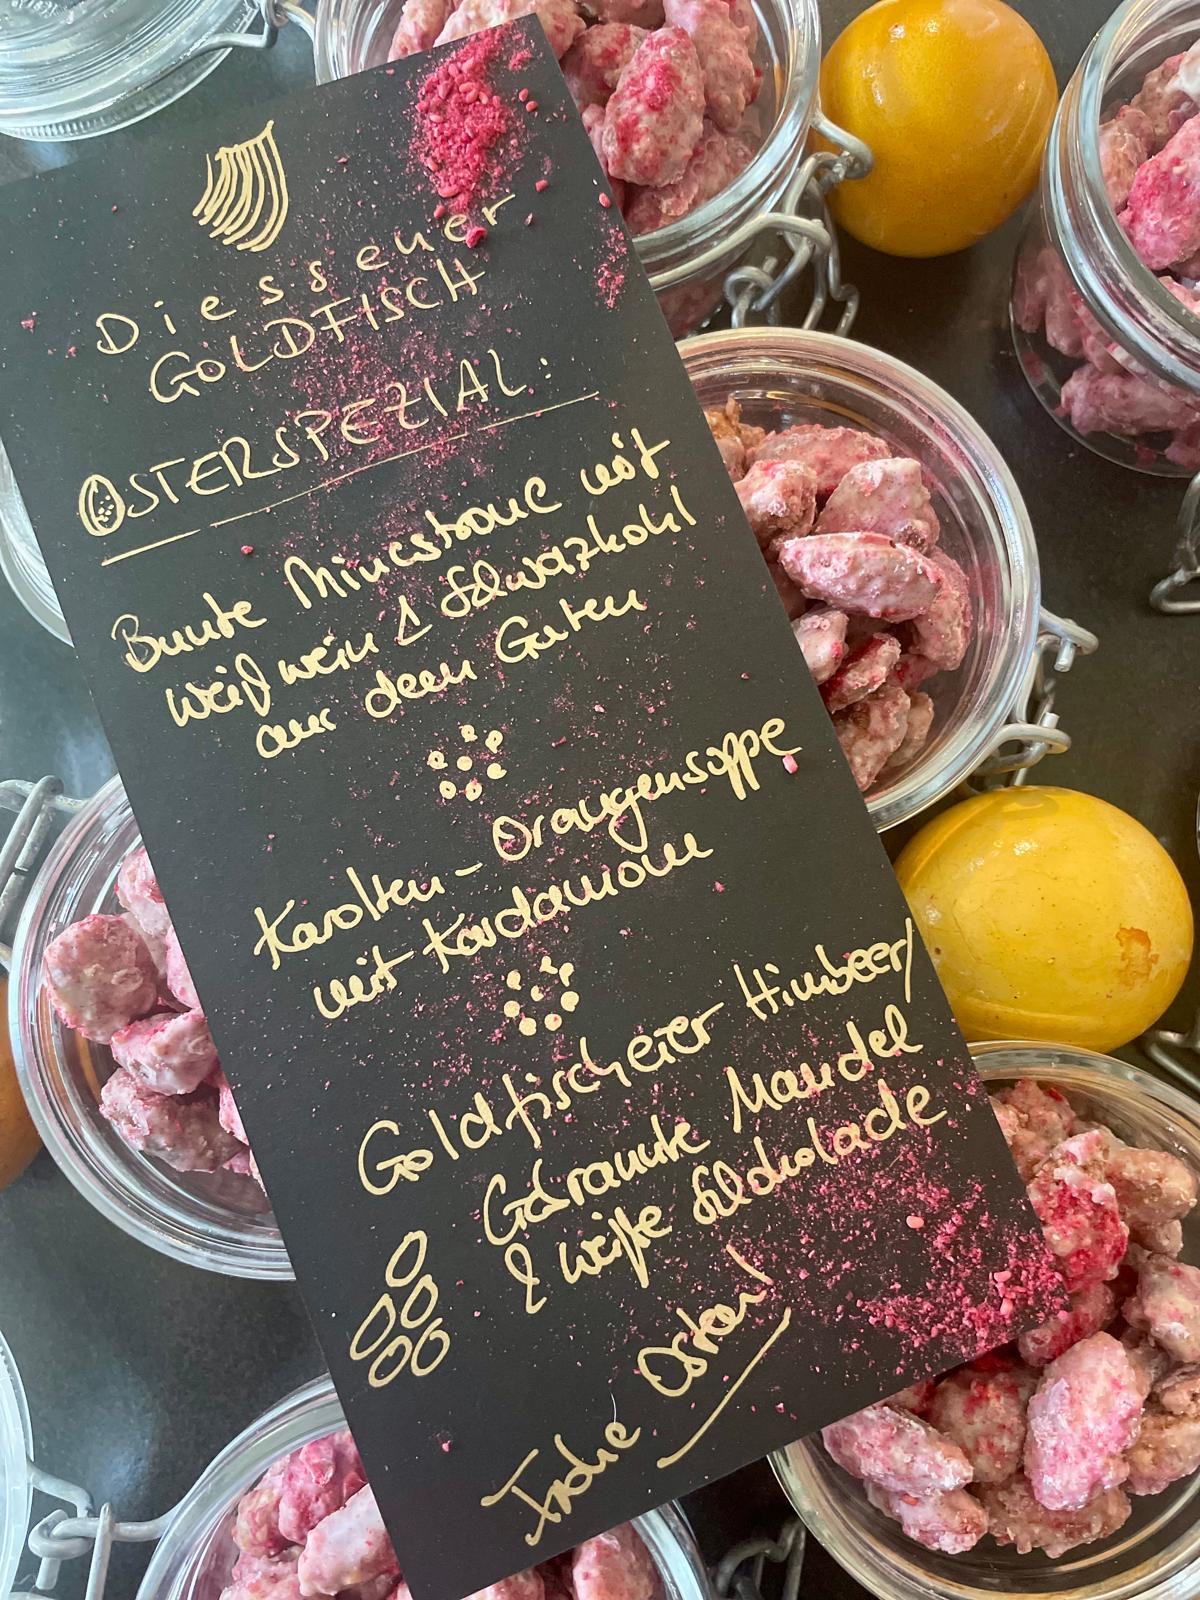 Diessener
GOLDFISCH
OSTERSPEZIAL:
Bunte Minestrone mit
Weißwein & Schwarzkohl
aus dem Garten
Karotten-Orangensuppe
mit Kardamom
Goldfischerei Himbeer/
Gebrannte Mandel
& weiße Schokolade
Frohe Ostern!